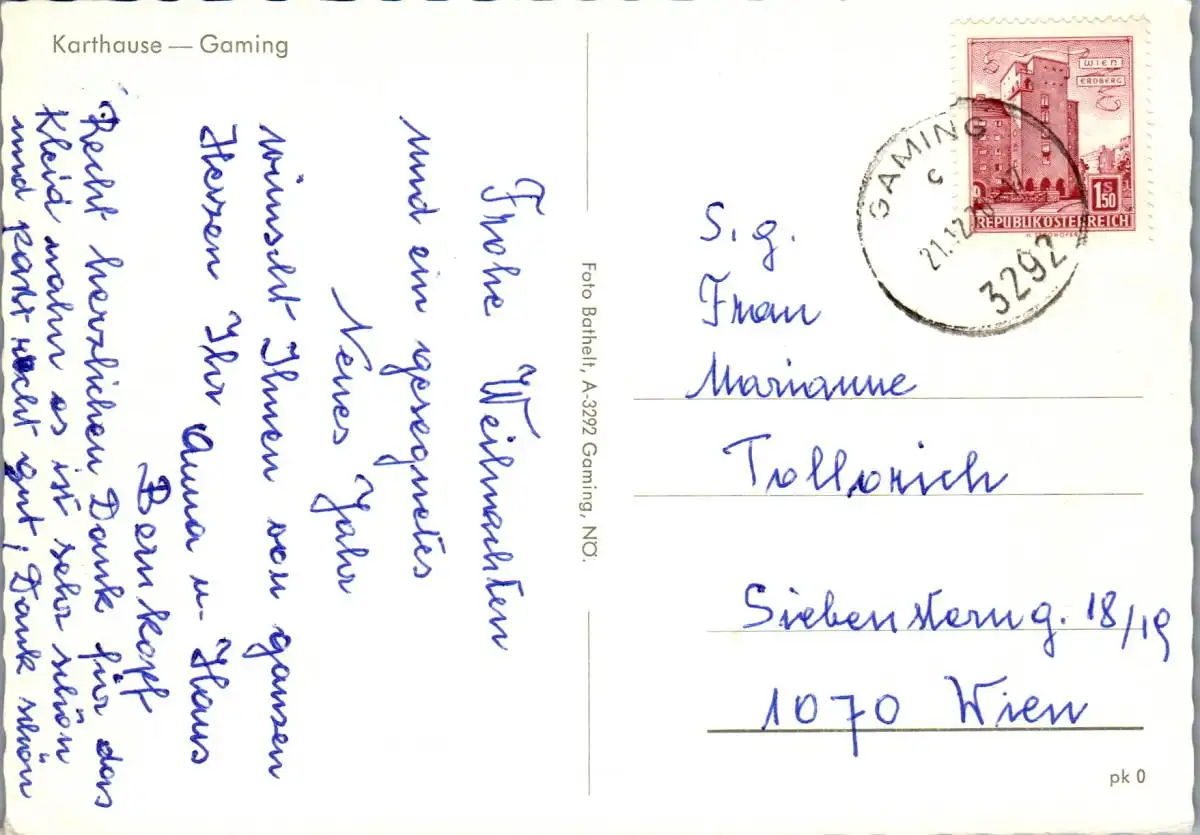 Karthause — Gaming
Frohe Weihnachten
und ein gesegnetes
Neues Jahr
wünscht Ihnen von ganzen
Herzen Ihr Anna u. Hans
Bernkopf
Recht herzlichen Dank für das
Kleid wahr es ist sehr schön
und past recht gut, Dank schön
Foto Bathelt, A-3292 Gaming, NÖ.
WIEN
ERDBERG
1 S 50
REPUBLIK ÖSTERREICH
GAMING
c
21.12.70
3292
S. g.
Frau
Marianne
Tollerich
Siebensterng. 18/19
1070 Wien
pk 0